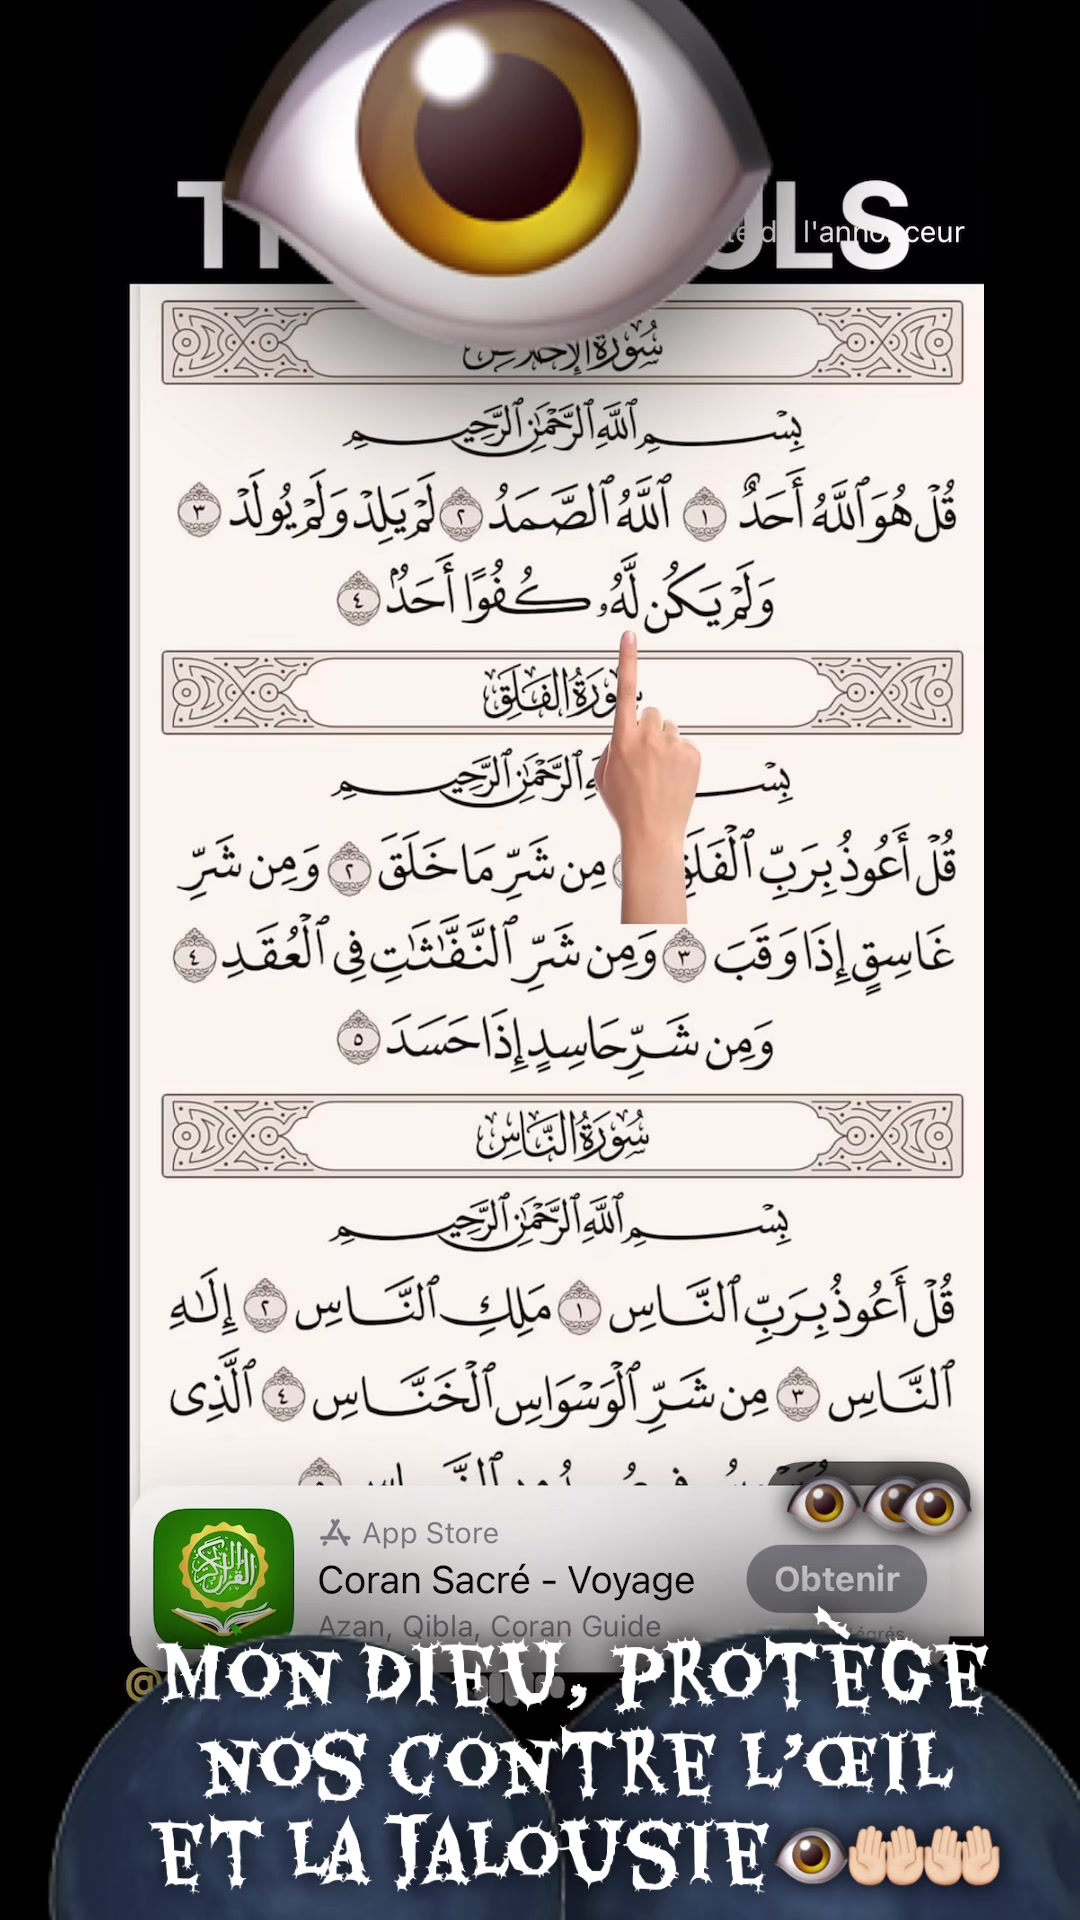 l'annonceur
سُورَةُ الإِخْلَاصِ
بِسْمِ ٱللَّهِ ٱلرَّحْمَٰنِ ٱلرَّحِيمِ
قُلْ هُوَ ٱللَّهُ أَحَدٌ ١ ٱللَّهُ ٱلصَّمَدُ ٢ لَمْ يَلِدْ وَلَمْ يُولَدْ ٣
وَلَمْ يَكُن لَّهُۥ كُفُوًا أَحَدٌۢ ٤
سُورَةُ الفَلَقِ
بِسْمِ ٱلرَّحْمَٰنِ ٱلرَّحِيمِ
قُلْ أَعُوذُ بِرَبِّ ٱلْفَلَقِ مِن شَرِّ مَا خَلَقَ ٢ وَمِن شَرِّ
غَاسِقٍ إِذَا وَقَبَ ٣ وَمِن شَرِّ ٱلنَّفَّٰثَٰتِ فِى ٱلْعُقَدِ ٤
وَمِن شَرِّ حَاسِدٍ إِذَا حَسَدَ ٥
سُورَةُ النَّاسِ
بِسْمِ ٱللَّهِ ٱلرَّحْمَٰنِ ٱلرَّحِيمِ
قُلْ أَعُوذُ بِرَبِّ ٱلنَّاسِ ١ مَلِكِ ٱلنَّاسِ ٢ إِلَٰهِ
ٱلنَّاسِ ٣ مِن شَرِّ ٱلْوَسْوَاسِ ٱلْخَنَّاسِ ٤ ٱلَّذِى
App Store
Coran Sacré - Voyage
Obtenir
Azan, Qibla, Coran Guide
MON DIEU, PROTÈGE
NOS CONTRE L'ŒIL
ET LA JALOUSIE